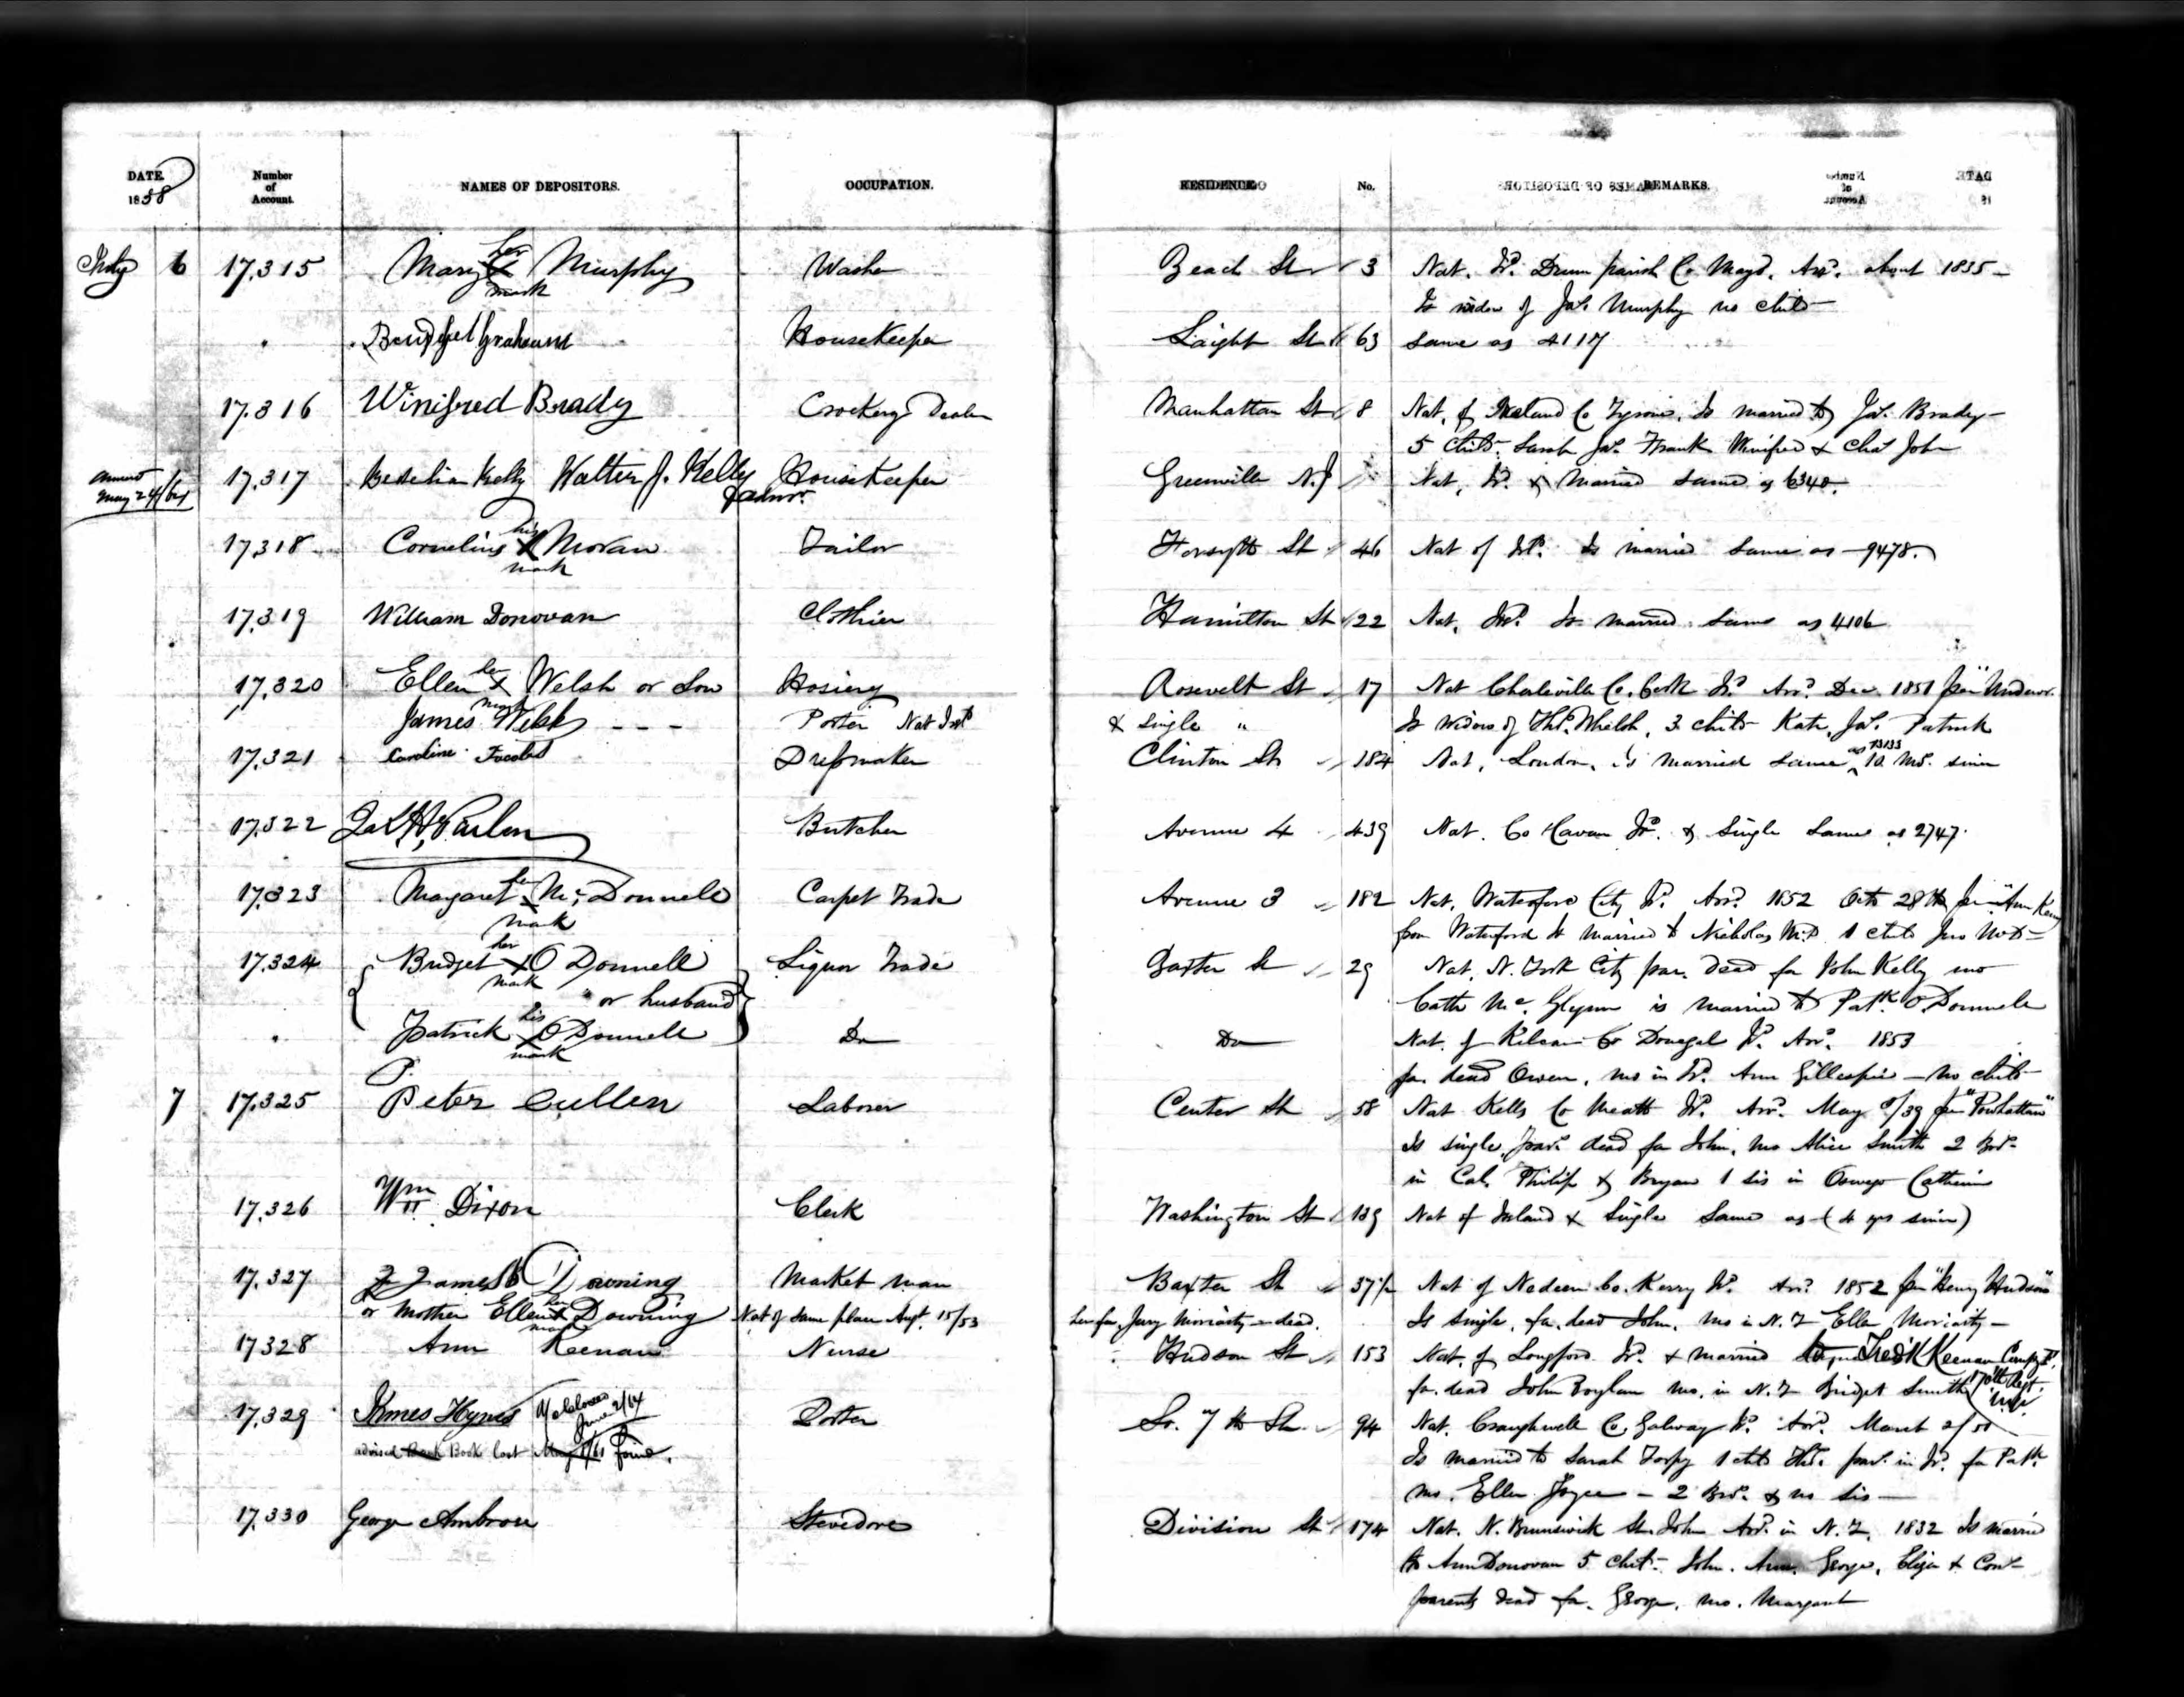 DATE. Number of Account. NAMES OF DEPOSITORS. OCCUPATION. RESIDENCE. No. REMARKS.
1858
July 6 17.315 Mary her X mark Murphy Washer Beach St 3 Nat. Ird. Drum parish Co Mayo. Arrd. about 1835
Is widow of Jas. Murphy no child
" Bridget Graham Housekeeper Laight St 63 same as 4117
17.316 Winifred Brady Crockery Dealer Manhattan St 8 Nat. of Ireland Co Tyrone. Is married to Jas. Brady
5 child. Sarah Jas. Frank Winifred & Chas John
May 24/64 17.317 Bedelia Kelly Walter J. Kelly Housekeeper Greenville N.J. Nat. Ird. & Married same as 6340.
17.318 Cornelius his X mark Moran Tailor Forsyth St 46 Nat of Ird. Is married same as 9478.
17.319 William Donovan Clothier Hamilton St 22 Nat. Ird. Is married same as 4106
17.320 Ellen her X mark Welsh or Son Hosiery Rosevelt St 17 Nat Charleville Co. Cork Ird Arrd. Dec. 1851 per
James Webb - - - Porter Nat Ird & single " Is Widow of Ths. Whelsh, 3 child Kate, Jas. Patrick
17.321 Caroline Dressmaker Clinton St 184 Nat, London, is married same as 13133 10 Ms. since
17.322 Butcher Avenue 4 439 Nat. Co Cavan Ird. & Single same as 2747.
17.323 Margaret her X mark Mc.Donnell Carpet Trade Avenue 3 182 Nat. Waterford City Ird. Arrd. 1852 Octr 28th per "Ann
from Waterford Is married to Nicholas McD 1 child Jno McD
17.324 Bridget her X mark O Donnell Liquor Trade Baxter St 29 Nat. N. York City par. dead fa John Kelly mo
" or husband Cath Mc. Glynn is married to Patk O.Donnell
" Patrick his X mark O Donnell Do Do Nat. of Co Donegal Ird. Arrd. 1853
fa. dead Owen. mo in Ird. Ann Gillespie — no child
7 17.325 Peter Cullen Laborer Center St 58 Nat Kells Co Meath Ird. Arrd. May /39 per "Powhattan"
Is single, pars. dead fa John, mo Alice Smith 2 Bros
in Cal. Philip & Bryan 1 sis in Oswego Catherine
17.326 Wm Dixon Clerk Washington St 139 Nat of Ireland & Single same as (4 yrs since)
17.327 James Downing Market man Baxter St 37½ Nat of Nedeen Co. Kerry Ird. Arrd. 1852 per "Henry Hudson"
or mother Ellen her X mark Downing Nat of same place Augt. 15/53 her fa. Jerry Moriarty dead. Is single, fa. dead John, mo in N.Y Ellen Moriarty
17328 Ann Keenan Nurse Hudson St 153 Nat. of Longford Ird. & married Fredk Keenan
fa. dead John Boylan mo. in N.Y Bridget Smith
17.329 James Hynes June 2/64 Porter So. 7th St 94 Nat. Craughwell Co. Galway Ird. Arrd. March 2/51
advised Book lost May 1/61 found. Is married to Sarah Torpy 1 child Ths. pars. in Ird. fa Patk
mo. Ellen Joyce — 2 Bros. & no sis —
17.330 George Ambrose Stevedore Division St 174 Nat. N. Brunswick St. John Arrd. in N.Y. 1832 Is married
to Ann Donovan 5 child. John. Ann. George, Eliza &
parents dead fa. George. mo. Margaret